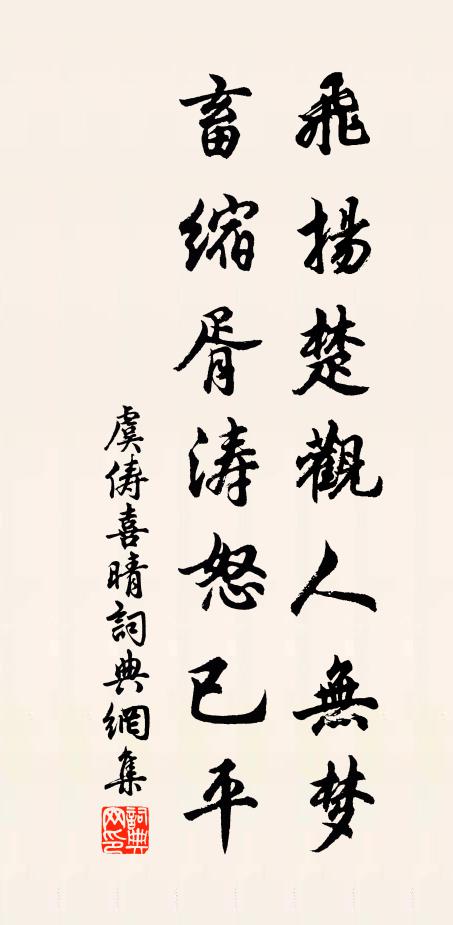 飛揚楚觀人無梦
畜縮胥涛怒已平
虞俦喜晴詞典網集
詞典網印